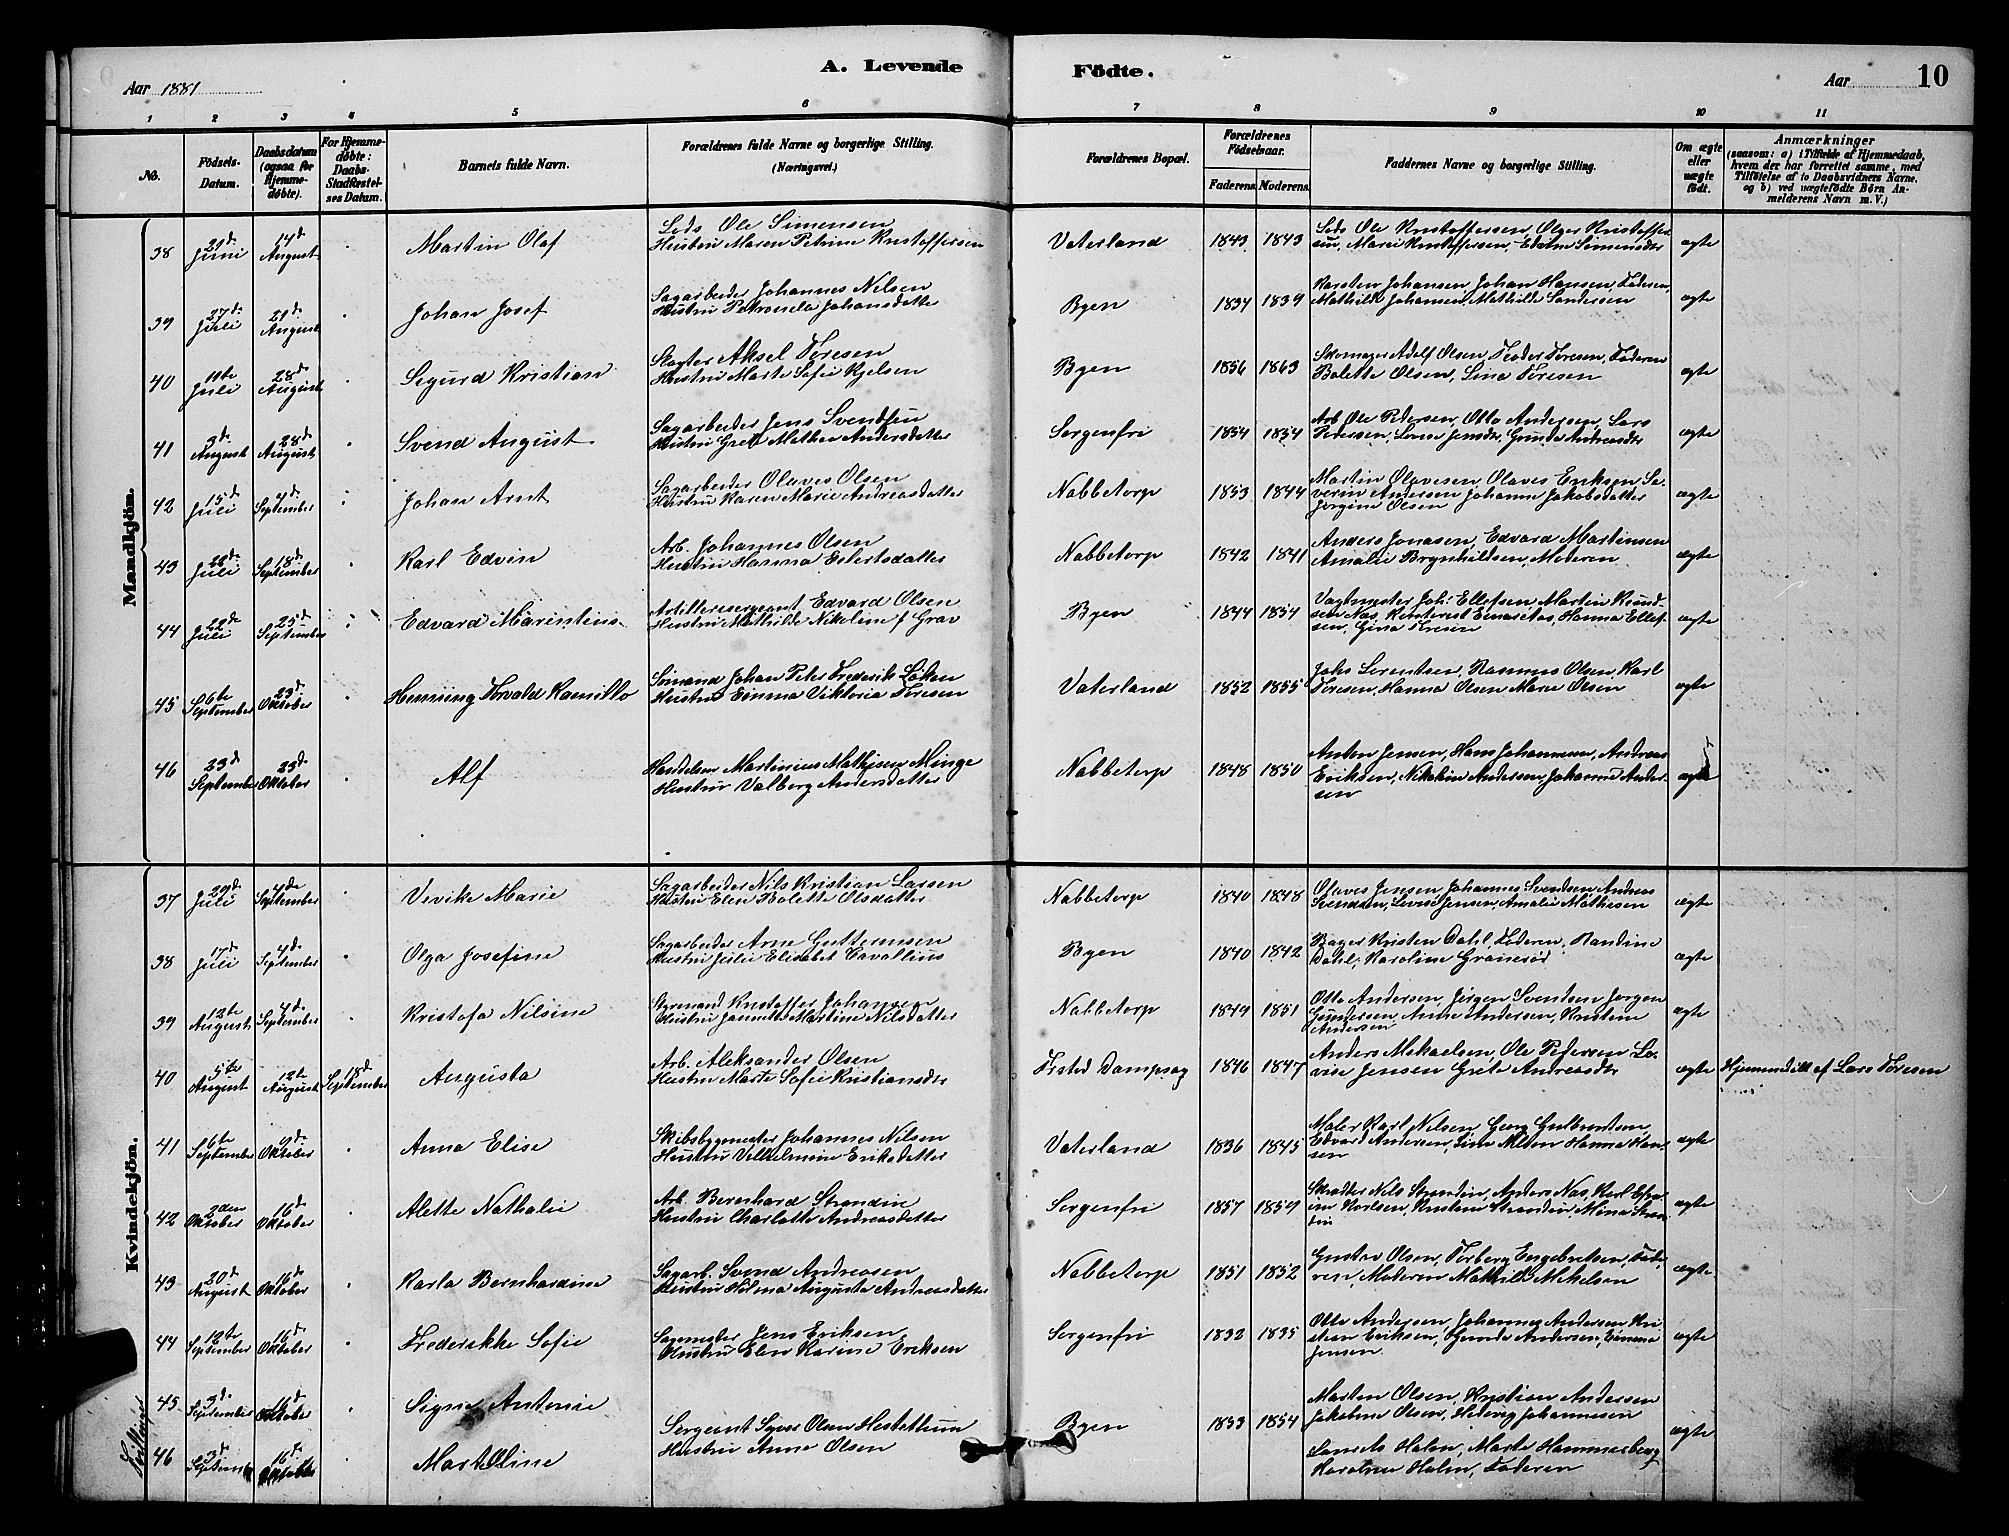 Aar 1881
A. Levende
Födte.
Aar
10
1 2 3 4 5 6 7 8 9 10 11
No.
Födsels-Datum.
Daabsdatum (ogsaa for Hjemme-döbte).
For Hjemme-døbte: Daabs-Stadfæstel-ses Datum.
Barnets fulde Navn.
Forældrenes fulde Navne og borgerlige Stilling. (Næringsvei.)
Forældrenes Bopæl.
Forældrenes Födselsaar.
Faderens. Moderens.
Faddernes Navne og borgerlige Stilling.
Om ægte eller uægte födt.
Anmærkninger
(saasom: a) i Tilfælde af Hjemmedaab, hvem der har forrettet samme, med Tilföielse af to Daabsvidners Navne, og b) ved uægtefödte Börn An-melderens Navn m. V.)
Mandkjön.
38 21de Juni 14de August Martin Olaf
Lods Ole Simensen
Hustru Maren Petrine Kristoffersen
Vaterland 1843 1843
Lods Ole Kristoffersen, Olger Kristoffer
sen, Maren Kristoffersen, Simensdtr
ægte
39 27de Juli 21de August Johan Josef
Sagarbeider Johannes Nilsen
Hustru Petronela Johansdatter
Byen 1834 1839
Karsten Johansen, Johan Hansen, Faderen,
Mathilde Johansen, Mathilde Sandersen
ægte
40 11te Juli 28de August Sigurd Kristian
Slagter Aksel Toresen
Hustru Marte Sofie Kjelsen
Byen 1856 1863
Skomager Adolf Olsen, Feodor Toresen, Faderen
Bolette Olsen, Lina Toresen
ægte
41 3de August 28de August Svend August
Sagarbeider Jens Svendsen
Hustru Grete Mathea Andersdatter
Sorgenfri 1854 1854
Arb. Ole Pedersen, Otto Andersen, Lars
Pedersen, Lovise Jensdtr, Gunda Andreasdtr
ægte
42 15de Juli 4de September Johan Arnt
Sagarbeider Olaves Olsen
Hustru Karen Marie Andreasdatter
Nabbetorp 1853 1844
Martin Olavesen, Olaves Eriksen Se-
verin Andersen Johanne Jakobsdatter
Jørgine Olsen
ægte
43 22de Juli 18de September Karl Edvin
Arb. Johannes Olsen
Hustru Hanna Eilertsdatter
Nabbetorp 1842 1841
Anders Jonasen, Edvard Martinsen
Amalie Brynhildsen, Moderen
ægte
44 22de Juli 25de September Edvard Marentius
Artillerisergeant Edvard Olsen
Hustru Mathilde Nikoline f Grav
Byen 1844 1854
Vagtmester Joh. Ellefsen Martin Knud-
sen Næs, Einar Næs, Hanna Ellef-
sen, Gina
ægte
45 6te September 23de Oktober Henning Torvald Kamillo
Sømand Johan Peter Frederik Løken
Hustru Emma Viktoria Toresen
Vaterland 1852 1855
Johs Lorentsen, Rasmus Olsen Karl
Toresen, Hanna Olsen Maren Olsen
ægte
46 23de September 23de Oktober Alf
Handelsm Martinius Mathisen Minge
Hustru Valborg Andersdatter
Nabbetorp 1848 1850
Anton Jensen, Hans Johannesen, Andreas
Eriksen, Nikoline Andersen, Johanne Ander-
sen
ægte
Kvindekjön.
37 29de Juli 4de September Vivike Marie
Sagarbeider Nils Kristian Larsen
Hustru Elen Bolette Olsdatter
Nabbetorp 1840 1848
Olaves Jensen, Johannes Svendsen, Andreas
Svendsen, Lovise Jensen, Amalie Mathisen
ægte
38 17de Juli 4de September Olga Josefine
Sagarbeider Arne Guttormsen
Hustru Julie Elisabet Cavallius
Byen 1840 1842
Bager Kristen Dahl, Faderen, Randine
Dahl, Karoline
ægte
39 12te August 4de September Kristofa Nilsine
Styrmand Kristoffer Johansen
Hustru Jannette Martine Nilsdatter
Nabbetorp 1849 1851
Otto Andersen, Jørgen Svendsen Jørgen
Gundersen, Anne Andersen, Kristine
Andersen
ægte
40 5te August 12te August 18de September Augusta
Arb. Aleksander Olsen
Hustru Marte Sofie Kristiansdtr
Frsted Dampsag 1846 1847
Anders Mikaelsen, Ole Pedersen Lo-
vise Jensen Grete Andreasdtr
ægte Hjemmedöbt af Lars Toresen
41 6te September 9de Oktober Anna Elise
Skibsbygmester Johannes Nilsen
Hustru Vilhelmine Eriksdatter
Vaterland 1836 1845
Maler Karl Nilsen Georg Gulbrandsen
Edvard Andersen, Lina Hanna Han-
sen
ægte
42 2den Oktober 16de Oktober Alette Nathalie
Arb. Bernhard Strandin
Hustru Charlotte Andreasdatter
Sorgenfri 1857 1859
Skrædder Nils Strandin, Anders Næs, Karl Efra-
im Karlsen, Kristine Strandin, Mina Stran
din
ægte
43 20de August 16de Oktober Karla Bernhardine
Sagarb. Svend Andreasen
Hustru Hilma Augusta Andreasdatter
Nabbetorp 1851 1852
Gustav Olsen, Torberg Engebretsen, Fade-
ren, Moderen Mathilde Mikelsen
ægte
44 12te September 16de Oktober Frederikke Sofie
Sagmester Jens Eriksen
Hustru Elen Karine Eriksen
Sorgenfri 1832 1835
Otto Andersen, Johannes Andersen Kri-
stian Eriksen, Gunda Andersen,
Jensen
ægte
Tvillinger
45 3de September 16de Oktober Signe Antonie
46 3de September 16de Oktober Mart Oline
Sergeant Syver Olsen
Hustru Anne Olsen
Byen 1853 1854
Marten Olsen, Kristian Andersen
Jakobine Olsen, Hedevig Johannesen
ægte
Holm, Marte Hammersberg
Holm, Faderen